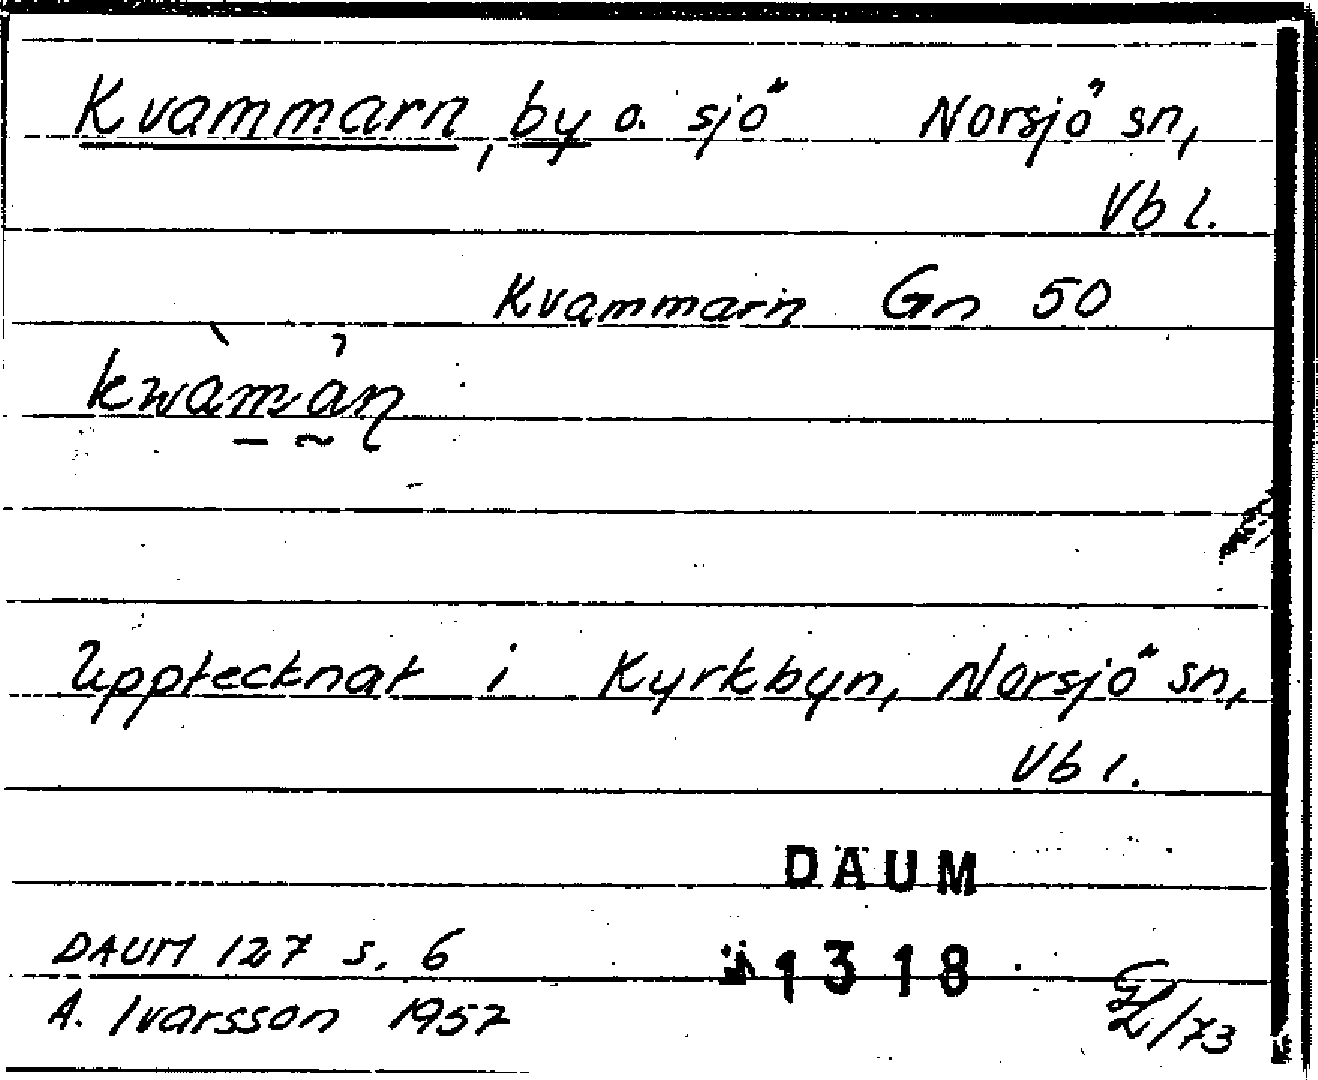 Kvammarn, by o. sjö Norsjö sn,
Vb l.
Kvammarn Gn 50
kwàmàn
Upptecknat i Kyrkbyn, Norsjö sn,
Vb l.
DAUM
DAUM 127 s. 6 1318
A. Ivarsson 1957 /73